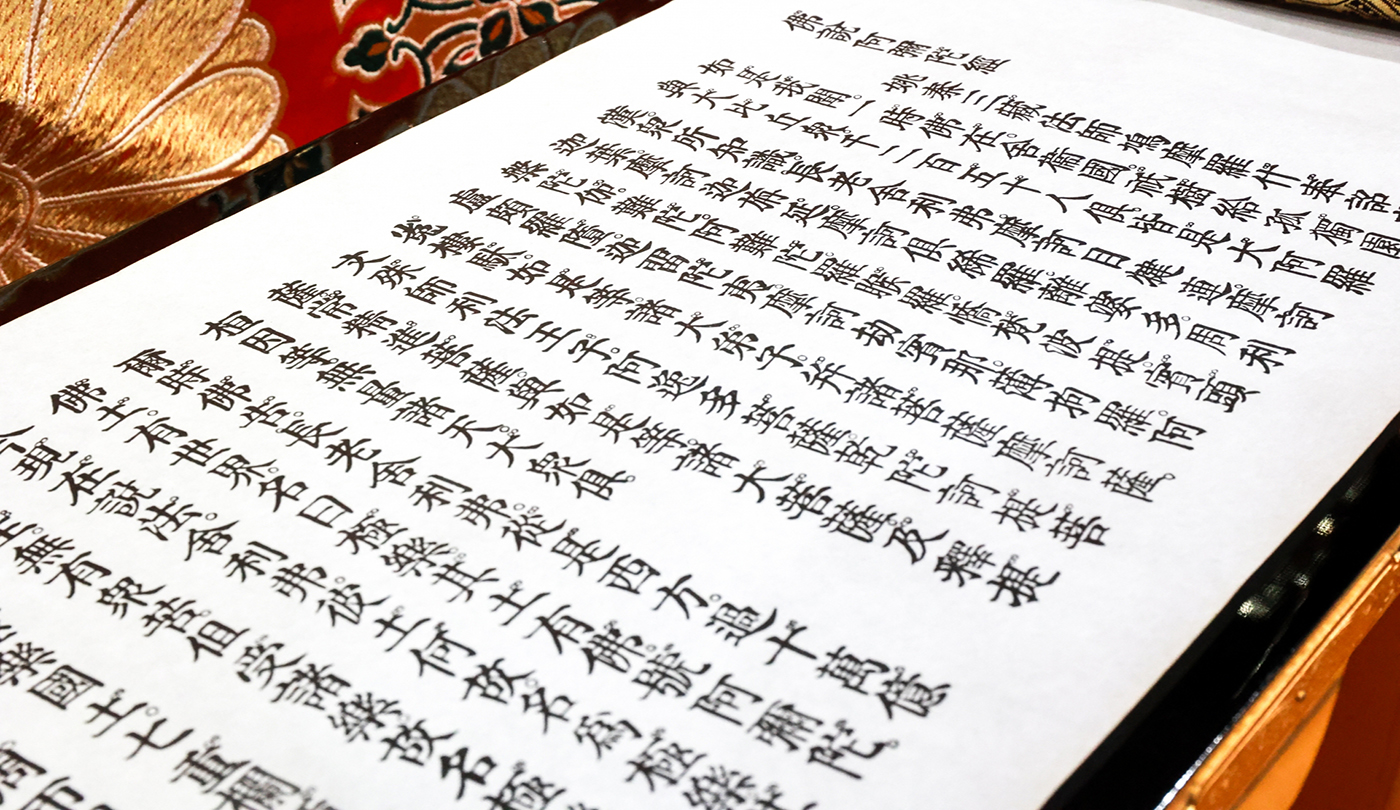 佛說阿彌陀經
姚秦三藏法師鳩摩羅什奉詔
如是我聞。一時佛在。舍衞國。祇樹給孤獨園
與大比丘衆。千二百五十人俱。皆是大阿羅
漢。衆所知識。長老舍利弗。摩訶目犍連。摩訶
迦葉。摩訶迦旃延。摩訶俱絺羅。離婆多。周利
槃陀伽。難陀。阿難陀。羅睺羅。憍梵波提。賓頭
盧頗羅墮。迦留陀夷。摩訶劫賓那。薄拘羅。阿
㝹樓馱。如是等。諸大弟子。幷諸菩薩摩訶薩。
文殊師利法王子。阿逸多菩薩。乾陀訶提菩
薩。常精進菩薩。與如是等。諸大菩薩。及釋提
桓因等。無量諸天。大衆俱。
爾時佛告。長老舍利弗。從是西方。過十萬億
佛土。有世界。名曰極樂。其土有佛。號阿彌陀。
今現在說法。舍利弗。彼土何故。名爲極樂
生。無有衆苦。但受諸樂。故名極
極樂國土。七重欄
周帀